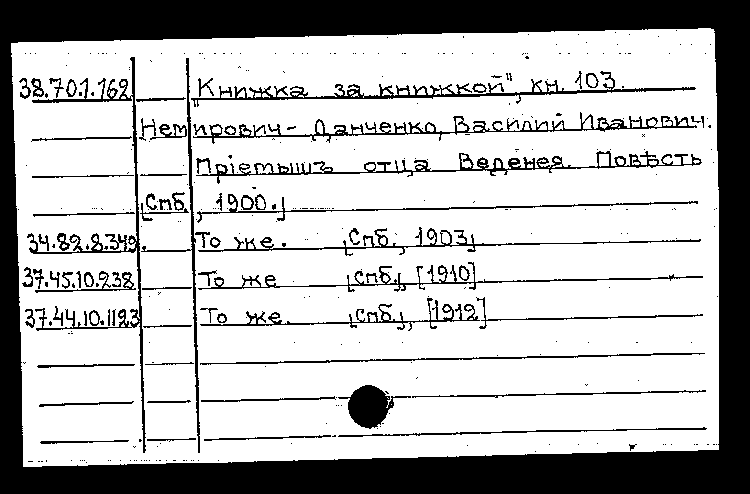 38.70.1.162 "Книжка за книжкой", кн. 103.
Немирович-Данченко, Василий Иванович.
Пріемышъ отца Веденея. Повѣсть
[Спб., 1900.]
34.82.8.349. То же. [Спб., 1903]
37.45.10.238 То же [Спб.], [1910]
37.44.10.1123 То же. [Спб.], [1912]